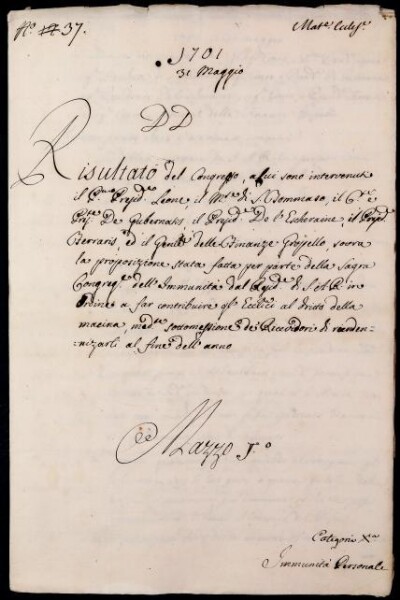 N.º 37.
Mat.e Eccles.e
1701
31 Maggio
DD
Risultato del Congresso, a cui sono intervenuti
il P.mo Presid.e Leone, il M.se di S. Tommaso, il C.te e
Pres.te De Gubernatis, il Presid.e De l'Escheraine, il Presid.e
Ferraris, ed il Gen.le delle Finanze Gropello, sovra
la proposizione stata fatta per parte della Sagra
Congreg.e dell'Immunità dal Resid.e di S.A.R. in
ordine a far contribuire gl'Eccl.ci al dritto della
macina, med.e sottomessione de Ricevidori di rinden-
-nizarli al fine dell'anno
Mazzo J.º
Categoria X.a
Immunità Personale